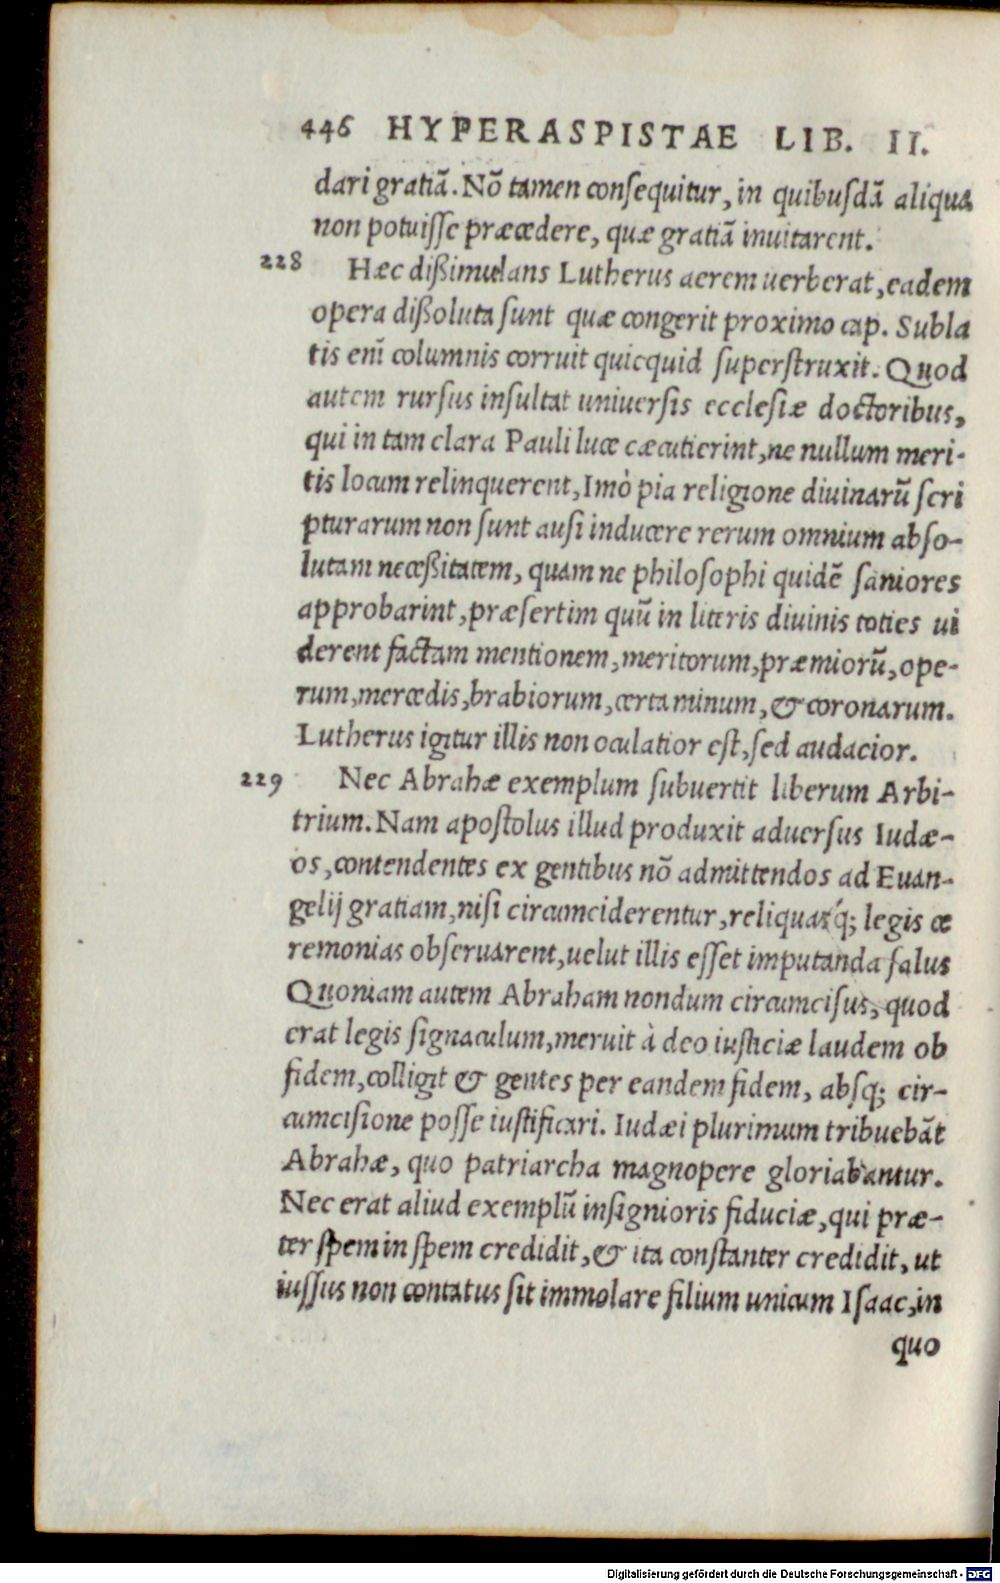 446 HYPERASPISTAE LIB. II.
dari gratiã. Nõ tamen consequitur, in quibusdã aliqua
non potuisse præcedere, quæ gratiã inuitarent.
228 Hæc dißimulans Lutherus aerem uerberat, eadem
opera dißoluta sunt quæ congerit proximo cap. Subla
tis em̃ columnis corruit quicquid superstruxit. Quod
autem rursus insultat uniuersis ecclesiæ doctoribus,
qui in tam clara Pauli luce cæcutierint, ne nullum meri-
tis locum relinquerent, Imò pia religione diuinarũ scri
pturarum non sunt ausi inducere rerum omnium abso-
lutam neceßitatem, quam ne philosophi quidẽ saniores
approbarint, præsertim quũ in literis diuinis toties ui
derent factam mentionem, meritorum, præmiorũ, ope-
rum, mercedis, brabiorum, certaminum, & coronarum.
Lutherus igitur illis non oculatior est, sed audacior.
229 Nec Abrahæ exemplum subuertit liberum Arbi-
trium. Nam apostolus illud produxit aduersus Iudæ-
os, contendentes ex gentibus nõ admittendos ad Euan-
gelij gratiam, nisi circumciderentur, reliquasq́; legis cæ
remonias obseruarent, uelut illis esset imputanda salus
Quoniam autem Abraham nondum circumcisus, quod
erat legis signaculum, meruit à deo iusticiæ laudem ob
fidem, colligit & gentes per eandem fidem, absq; cir-
cumcisione posse iustificari. Iudæi plurimum tribuebãt
Abrahæ, quo patriarcha magnopere gloriabantur.
Nec erat aliud exemplũ insignioris fiduciæ, qui præ-
ter spem in spem credidit, & ita constanter credidit, ut
iussus non contatus sit immolare filium unicum Isaac, in
quo
Digitalisierung gefördert durch die Deutsche Forschungsgemeinschaft - DFG